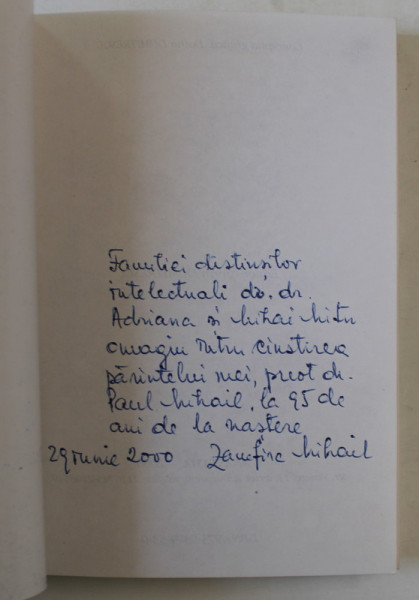 Familiei distinșilor
intelectuali d. dr.
Adriana și Mihai Mitu
omagiu întru cinstirea
părintelui meu, preot dr.
Paul Mihail, la 95 de
ani de la naștere
29 iunie 2000 Zamfira Mihail